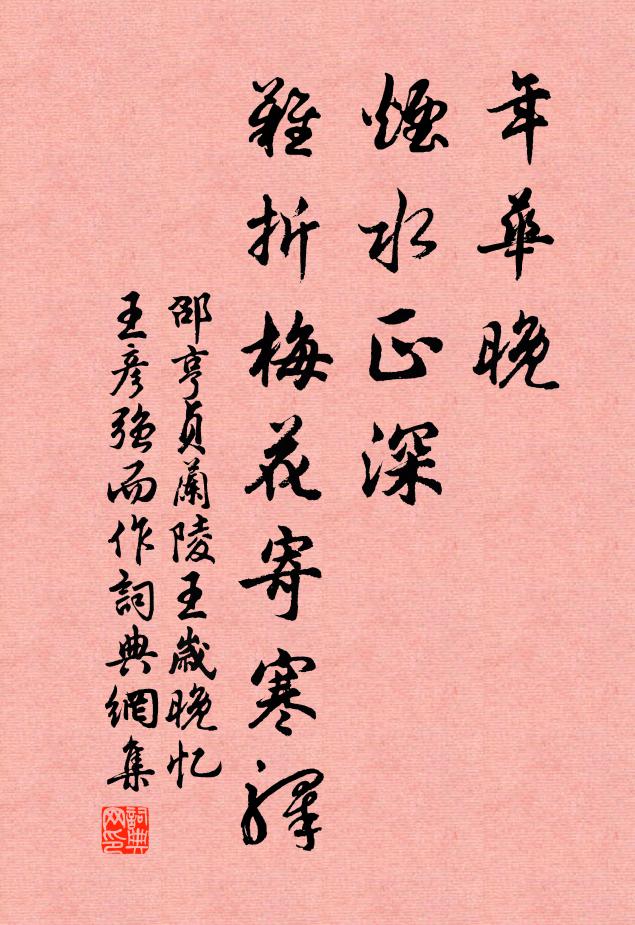 年華晚
煙水正深
難折梅花寄寒驛
邵亨貞蘭陵王歲晚忆
王彦強而作詞典網集
詞典网印